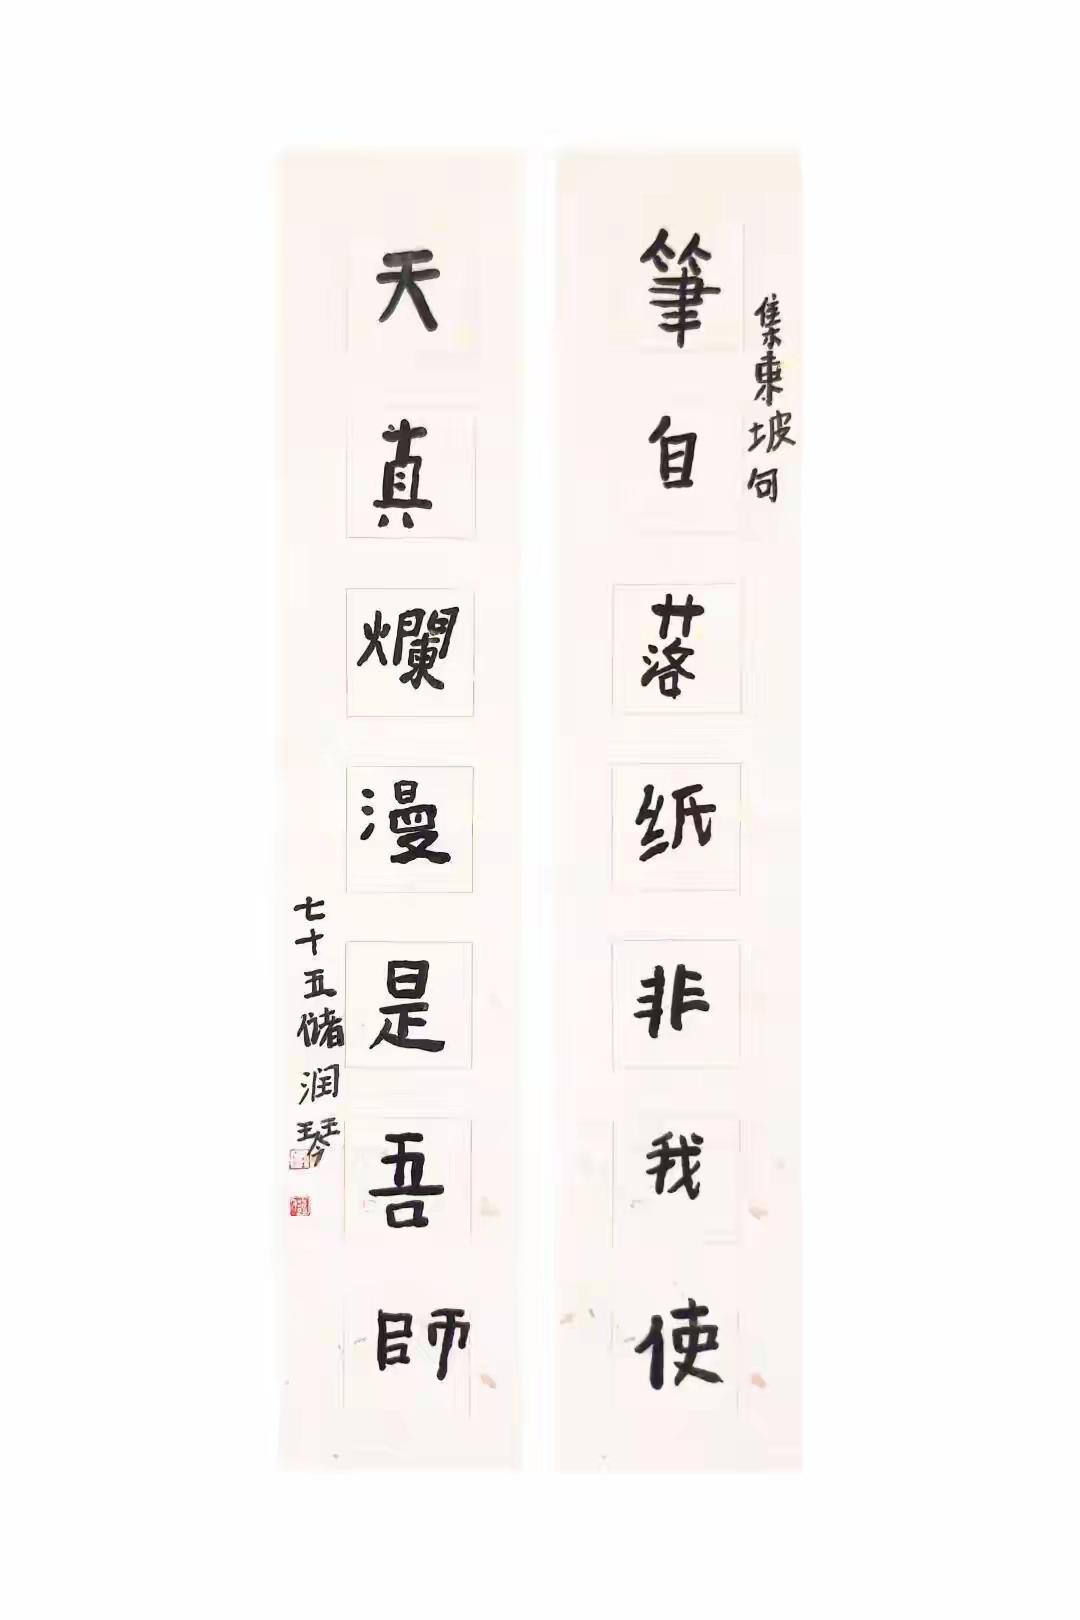 集東坡句
筆自落纸非我使
天真爛漫是吾師
七十五储润琴